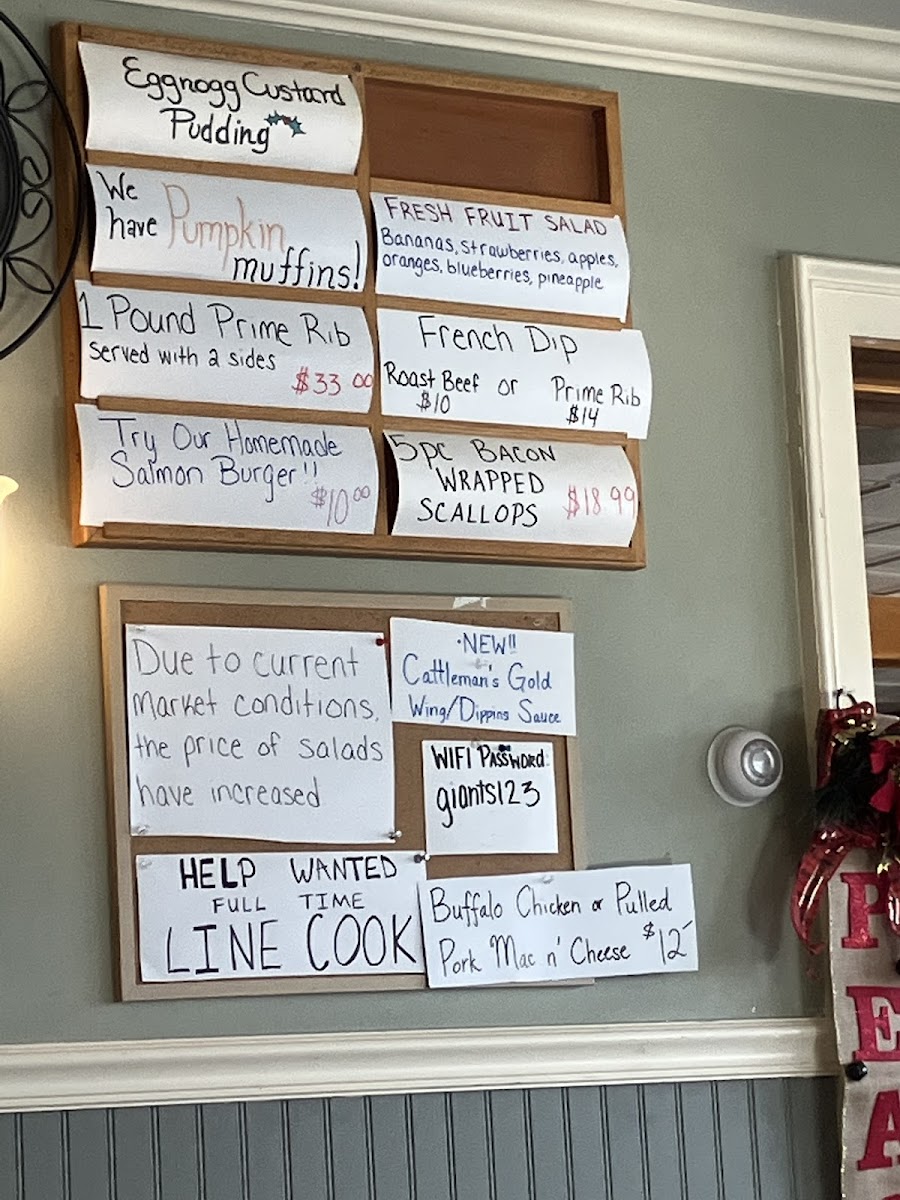 Eggnogg Custard
Pudding
We
have Pumpkin
muffins!
FRESH FRUIT SALAD
Bananas, strawberries, apples,
oranges, blueberries, pineapple
1 Pound Prime Rib
Served with 2 sides
$33 00
French Dip
Roast Beef or Prime Rib
$10 $14
Try Our Homemade
Salmon Burger!!
$10 00
5pc BACON
WRAPPED
SCALLOPS $18 99
Due to current
market conditions,
the price of salads
have increased
·NEW!!
Cattleman's Gold
Wing/Dipping Sauce
WIFI PASSWORD:
giants123
HELP WANTED
FULL TIME
LINE COOK
Buffalo Chicken or Pulled
Pork Mac n' Cheese $12
P
E
A